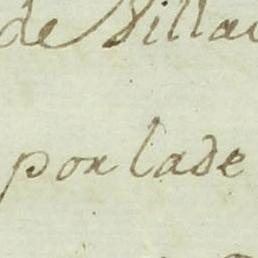 de Villa
por lade